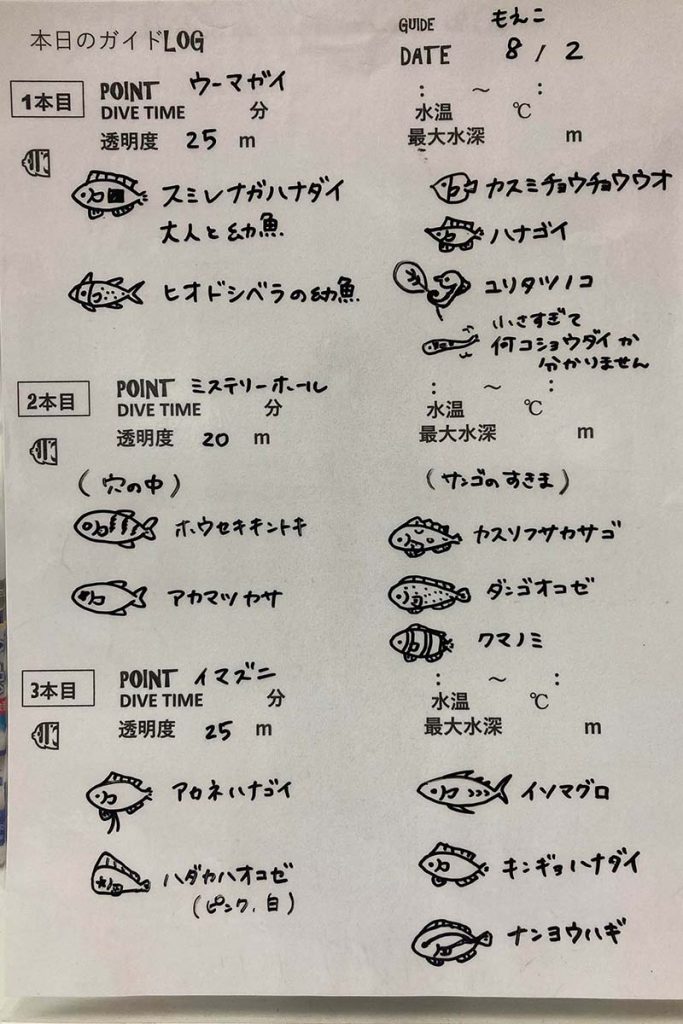 本日のガイドLOG
GUIDE もえこ
DATE 8 / 2
1本目
POINT ウーマガイ
DIVE TIME 分
透明度 25 m
: ～ :
水温 ℃
最大水深 m
スミレナガハナダイ
大人と幼魚
ヒオドシベラの幼魚
カスミチョウチョウウオ
ハナゴイ
ユリタツノコ
小さすぎて
何コショウダイか
分かりません
2本目
POINT ミステリーホール
DIVE TIME 分
透明度 20 m
: ～ :
水温 ℃
最大水深 m
(穴の中)
ホウセキキントキ
アカマツカサ
(サンゴのすきま)
カスリフサカサゴ
ダンゴオコゼ
クマノミ
3本目
POINT イマズニ
DIVE TIME 分
透明度 25 m
: ～ :
水温 ℃
最大水深 m
アカネハナゴイ
ハダカハオコゼ
(ピンク、白)
イソマグロ
キンギョハナダイ
ナンヨウハギ